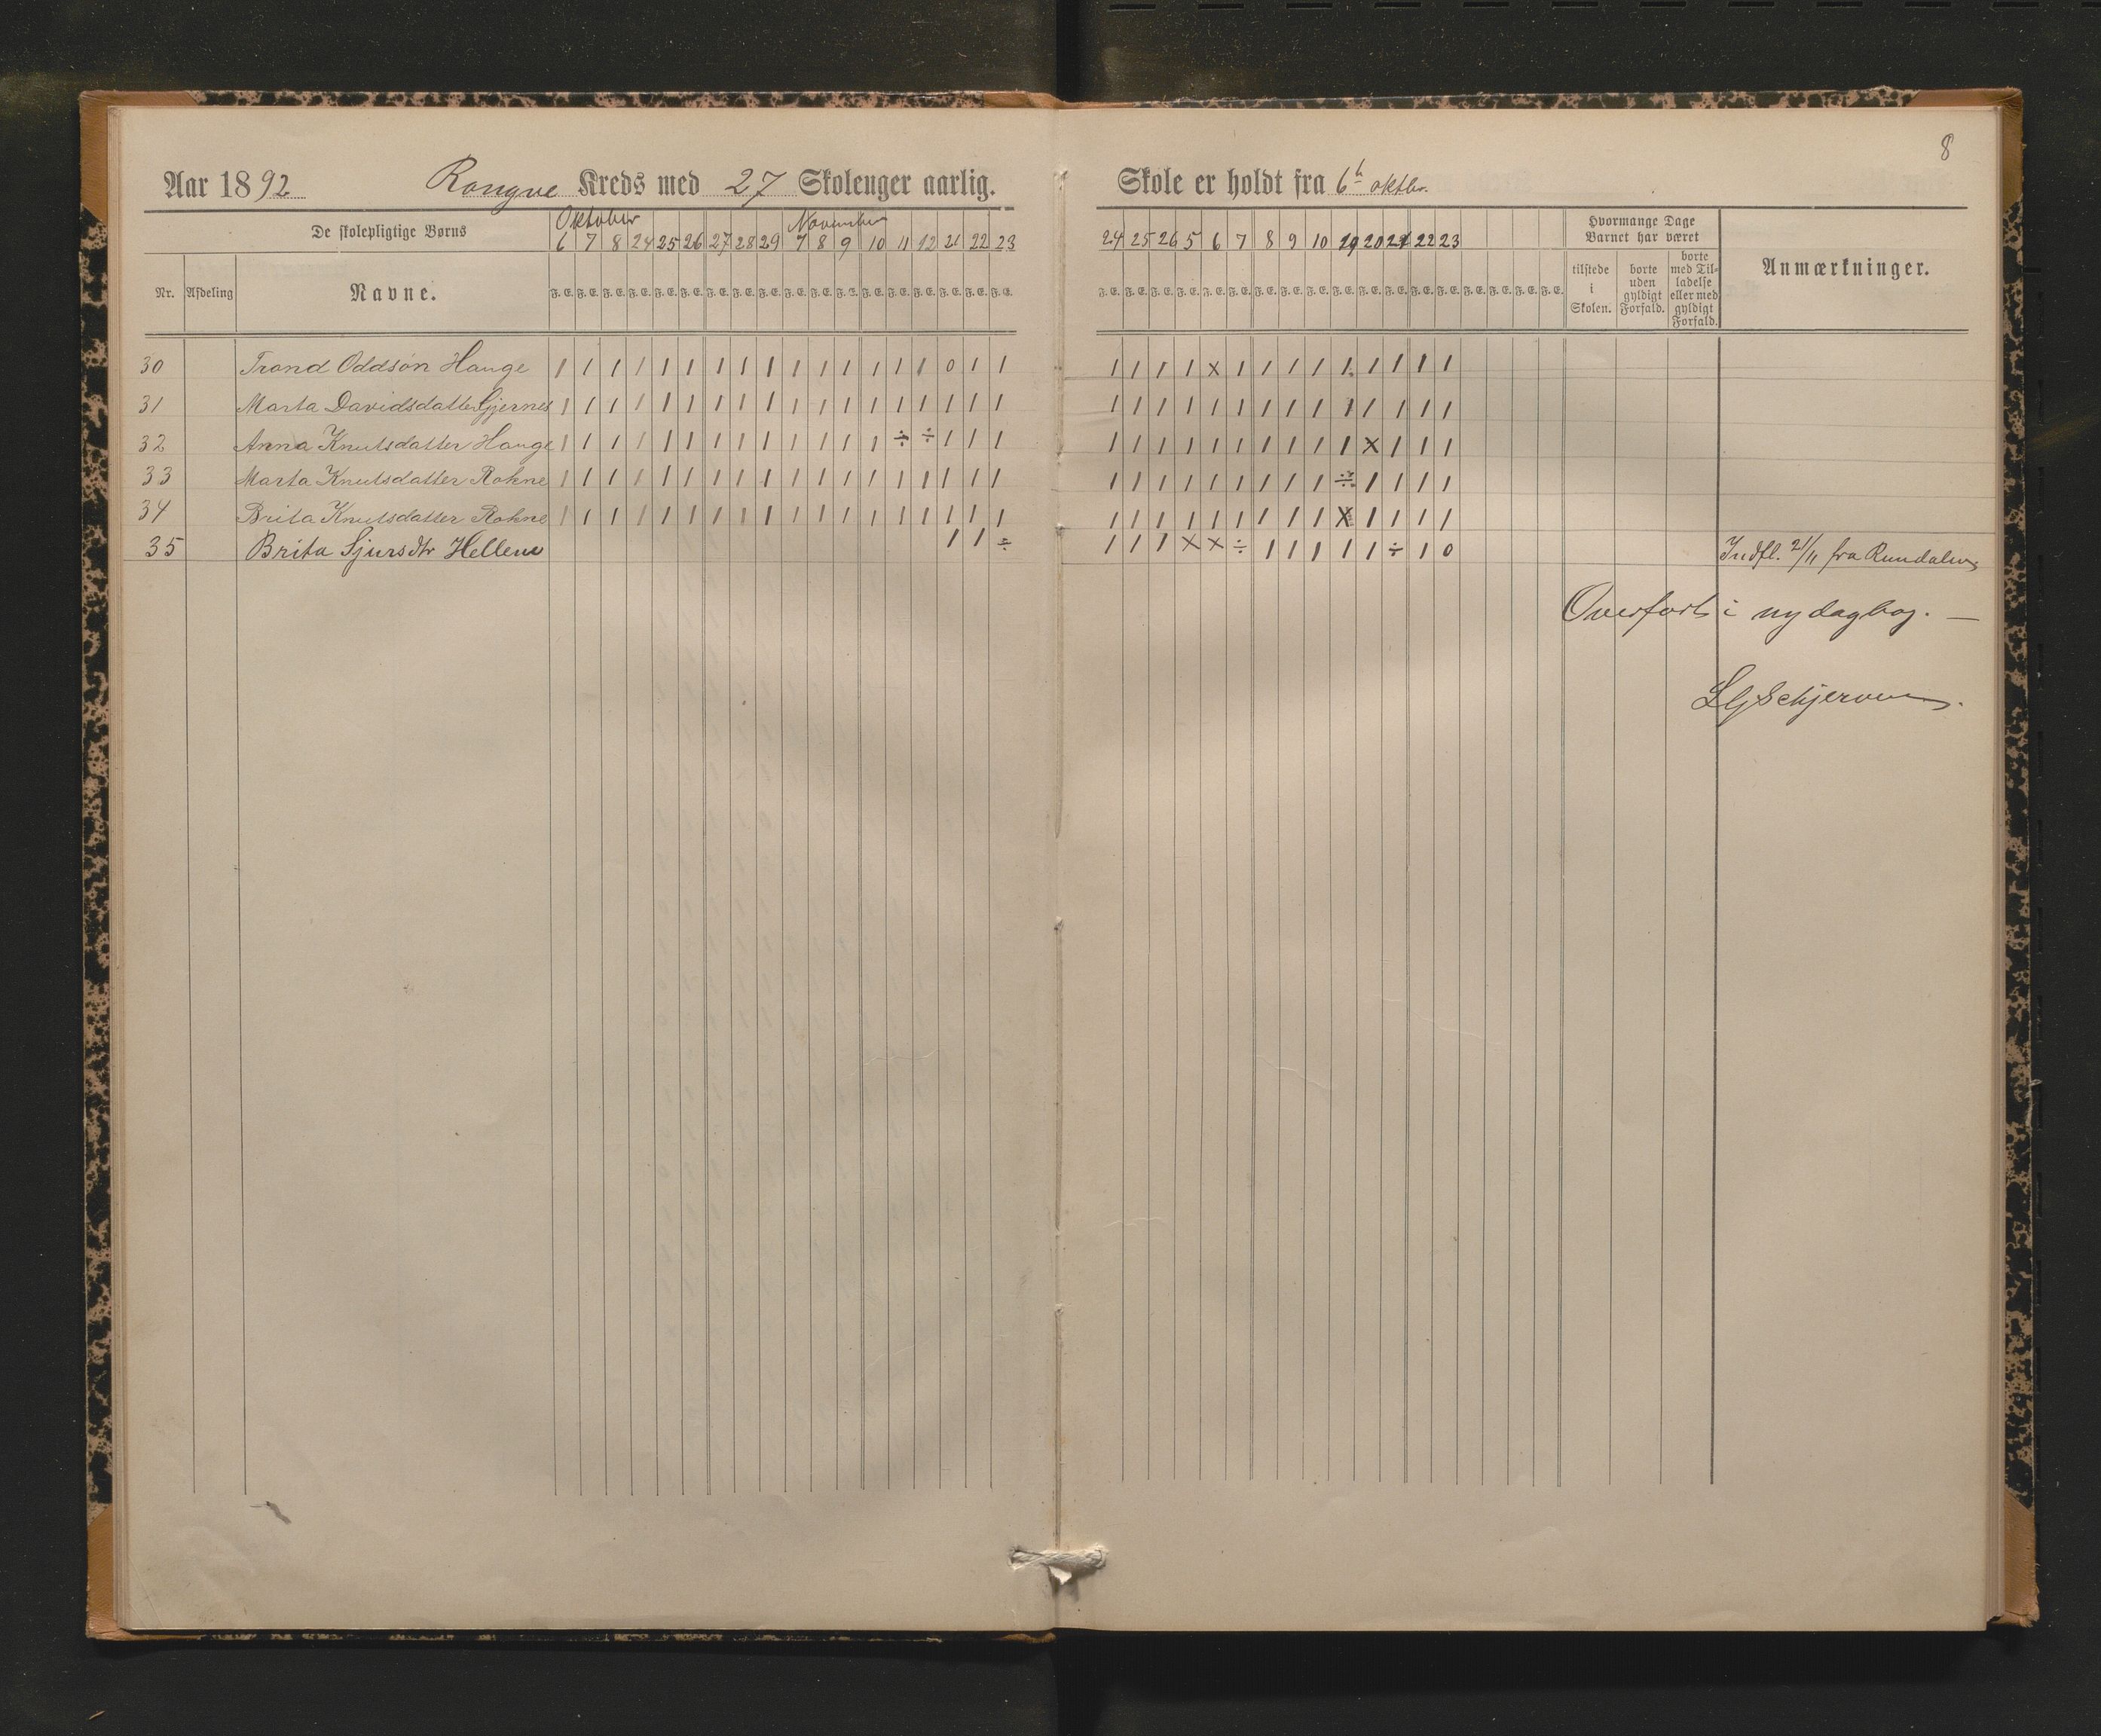 8
Aar 1892 Rongve Kreds med 27 Skolenger aarlig. Skole er holdt fra 6h oktbr.
De skolepligtige Børns Oktober November Hvormange Dage Barnet har været
6 7 8 24 25 26 27 28 29 7 8 9 10 11 12 21 22 23 24 25 26 5 6 7 8 9 10 19 20 21 22 23
Nr. Afdeling Navne. F. E. F. E. F. E. F. E. F. E. F. E. F. E. F. E. F. E. F. E. F. E. F. E. F. E. F. E. F. E. F. E. F. E. F. E. F. E. F. E. F. E. F. E. F. E. F. E. F. E. F. E. F. E. F. E. F. E. F. E. F. E. F. E. F. E. F. E. F. E. F. E. tilstede i Skolen. borte uden gyldigt Forfald. borte med Tilladelse eller med gyldigt Forfald. Anmærkninger.
30 Trond Oddsøn Hauge 1 1 1 1 1 1 1 1 1 1 1 1 1 1 1 0 1 1 1 1 1 1 × 1 1 1 1 1 1 1 1 1
31 Marta Davidsdatter Gjernes 1 1 1 1 1 1 1 1 1 1 1 1 1 1 1 1 1 1 1 1 1 1 1 1 1 1 1 1 1 1 1 1
32 Anna Knutsdatter Hauge 1 1 1 1 1 1 1 1 1 1 1 1 1 ÷ ÷ 1 1 1 1 1 1 1 1 1 1 1 1 1 × 1 1 1
33 Marta Knutsdatter Rokne 1 1 1 1 1 1 1 1 1 1 1 1 1 1 1 1 1 1 1 1 1 1 1 1 1 1 1 ÷ 1 1 1 1
34 Brita Knutsdatter Rokne 1 1 1 1 1 1 1 1 1 1 1 1 1 1 1 1 1 1 1 1 1 1 1 1 1 1 1 × 1 1 1 1
35 Brita Sjursdtr Hellene 1 1 ÷ 1 1 1 × × ÷ 1 1 1 1 1 ÷ 1 0 Indfl. 21/11 fra Rundalen
Overført i ny dagbog. —
LGSchjerven.